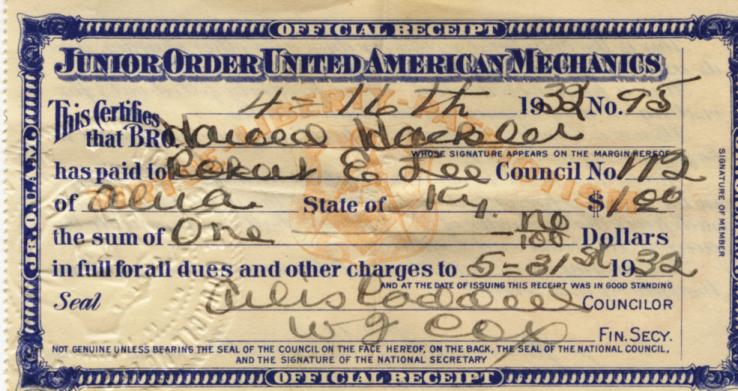 OFFICIAL RECEIPT
JUNIOR ORDER UNITED AMERICAN MECHANICS
4 = 16 th 1932 No. 95
This Certifies that BRO.
WHOSE SIGNATURE APPEARS ON THE MARGIN HEREOF
has paid to Robert E Lee Council No 112
of State of Ky. $1.00
the sum of One no/100 Dollars
in full for all dues and other charges to 5=31st 1932
AND AT THE DATE OF ISSUING THIS RECEIPT WAS IN GOOD STANDING
Seal COUNCILOR
W J Cox FIN. SECY.
NOT GENUINE UNLESS BEARING THE SEAL OF THE COUNCIL ON THE FACE HEREOF, ON THE BACK, THE SEAL OF THE NATIONAL COUNCIL,
AND THE SIGNATURE OF THE NATIONAL SECRETARY
OFFICIAL RECEIPT
JR. O. U. A. M.
SIGNATURE OF MEMBER